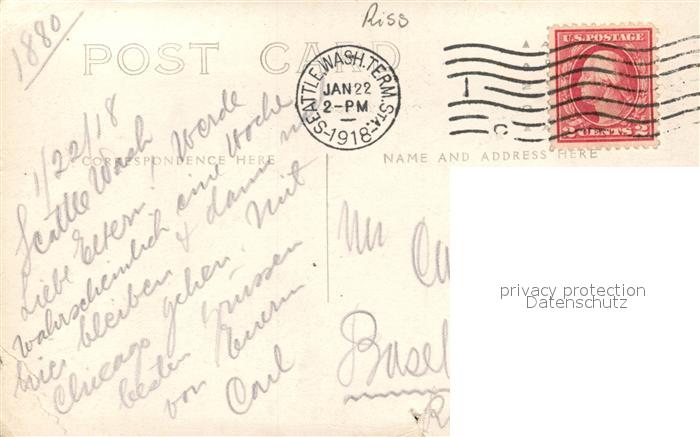 1880
Riss
POST CARD
SEATTLE, WASH. TERM. STA.
JAN 22
2-PM
1918
U.S. POSTAGE
2 CENTS 2
CORRESPONDENCE HERE
NAME AND ADDRESS HERE
1/22/18
Seattle Wash
Liebe Eltern, Werde
wahrscheinlich eine Woche
hier bleiben & dann
Chicago gehen. Mit
besten Grüssen
von Euerm
Carl
Mr Ca
Basel
R
privacy protection
Datenschutz